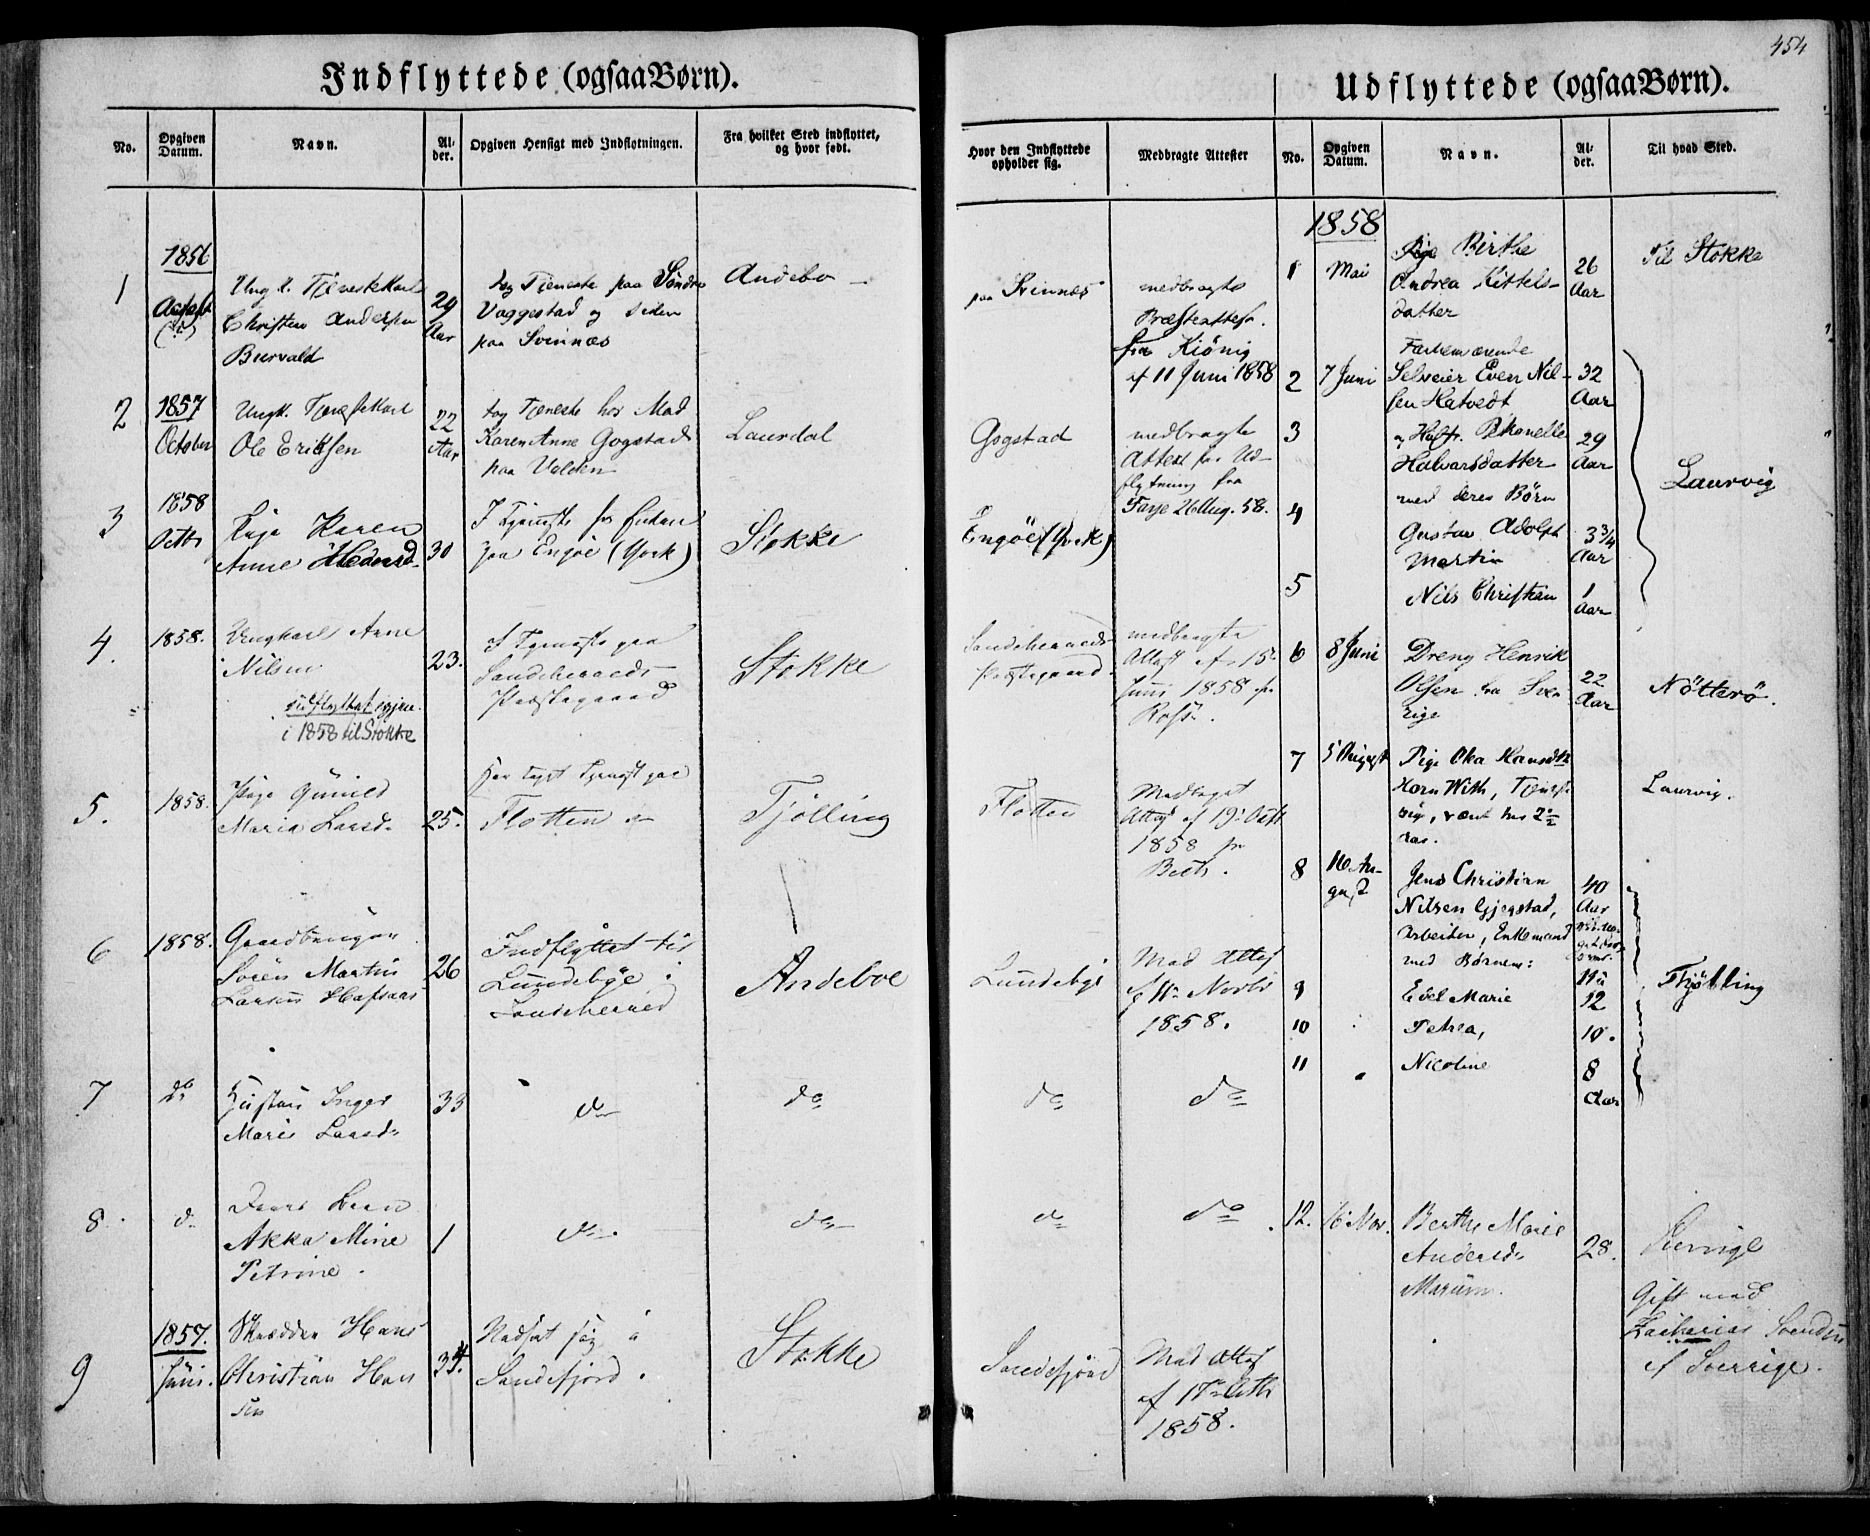 454
Indflyttede (ogsaa Børn).
No.
Opgiven Datum.
Navn.
Alder.
Opgiven Hensigt med Indflytningen.
Fra hvilket Sted indflyttet, og hvor født.
Hvor den Indflyttede opholder sig.
Medbragte Attester
1
1856
Ungk. Tjenestekarl
Christen Andersen
29
Aar
tog Tjeneste paa Söndre
Vaggestad og siden
paa Svinnæs
Andebo
paa Svinnæs
medbragte
Præsteattest
fra
af 11 Juni 1858
2
1857
October
Ungk. Tjenestekarl
Ole Eriksen
22
Aar
tog Tjeneste hos Mad
Karen Anne Gogstad
paa Valden
Laurdal
Gogstad
medbragte
Attest for Ud-
flytning fra
26 Aug. 58.
3
1858
Octbr
Pige Karen
Anne
30
I Tjeneste
paa Engöe (York)
Stokke
Engöe (York)
4.
1858.
Ungkarl Arne
Nilsen
udflyttet igjen
i 1858 til Stokke
23.
I Tjeneste paa
Sandeherreds
Præstegaard
Stokke
Sandeherreds
Præstegaard.
medbragte
Attest af 15
Juni 1858 fr
5.
1858.
Pige Gunild
Maria Larsd.
25.
Har taget Tjeneste paa
Flotten
Tjölling
Flotten
Medtaget
Attest af 19 Octb
1858 fr
6
1858.
Sören Martin
Larsen
26
Indflyttet til
Lundebye i
Sandeherred
Andeboe
Lundebye
Med Attest
af 11 Novbr
1858.
7
do
Hustru Inger
Marie Larsd.
33
do
do
do
do
8
do
Deres Barn
Akka Mine
Petrine.
1
do
do
do
do
9
1857.
Juni.
Skrædder Hans
Christian Han
sen
34.
Nedsat sig i
Sandefjord.
Stokke
Sandefjord
Med Attest
af 17 Octb
1858.
Udflyttede (ogsaa Børn).
No.
Opgiven Datum.
Navn.
Alder.
Til hvad Sted.
1858
1
Mai
Pige Birthe
Andrea Kittels-
datter
26
Aar
Til Stokke
2
7 Juni
Forhenværende
Selveier Even Nil-
sen Hatvedt
32
Aar
3
og Hustr. Petronelle
Halvorsdatter
29
Aar
Laurvig
med deres Börn
4
Gustav Adolph
Martin
3 3/4
Aar
5
Nils Christian
1
Aar
6
8 Juni
Dreng Henrik
Olsen fra Sve
rige
22
Aar
Nötterö.
7
5 August
Pige Oka Hansdtr
Laurvig.
8
16 Au-
gust
Jens Christian
Nilsen Gjegstad,
Arbeider, Enkemand
med Børnene:
40
Aar
Thjölling
9
Edel Marie
12
10
Petrea,
10.
11
Nicoline
8
Aar
12.
16 Nov.
Berthe Marie
Andersd.
28.
Sverrige
Gift med
Zacharias Svendsen
af Sverrige.